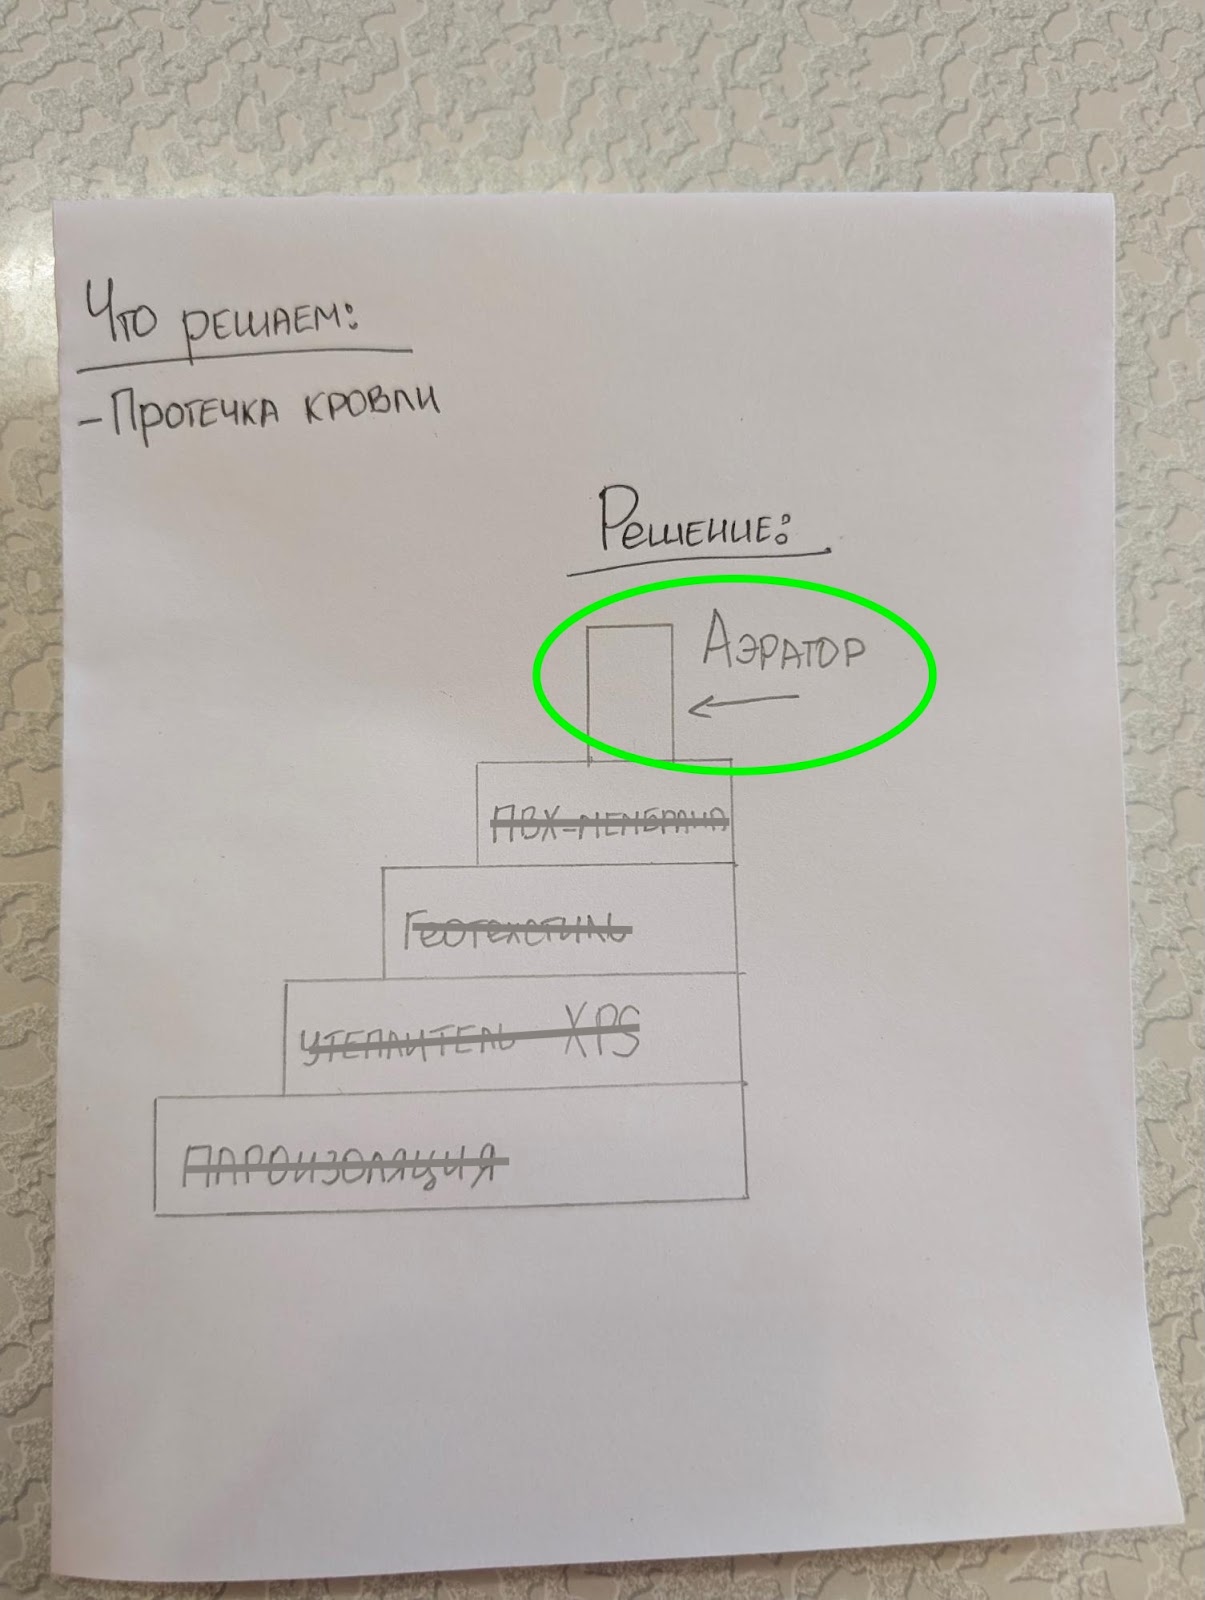 Что решаем:
- Протечка кровли
Решение:
Аэратор
ПВХ-мембрана
Геотекстиль
утеплитель XPS
Пароизоляция